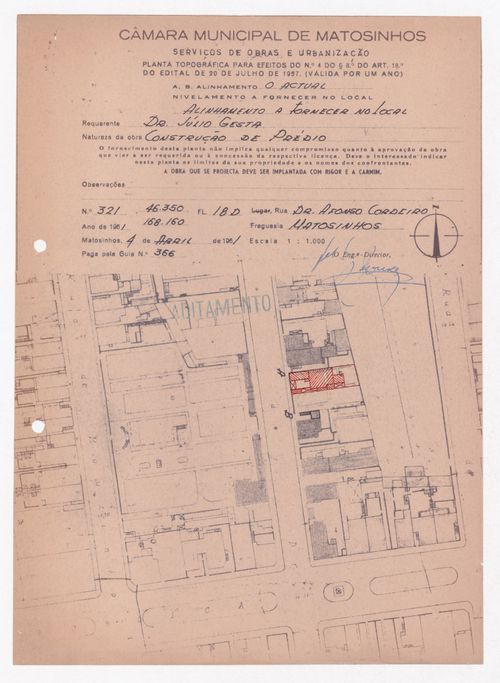 CÂMARA MUNICIPAL DE MATOSINHOS
SERVIÇOS DE OBRAS E URBANIZAÇÃO
PLANTA TOPOGRÁFICA PARA EFEITOS DO N.º 4 DO § 8.º DO ART. 18.º
DO EDITAL DE 20 DE JULHO DE 1957. (VÁLIDA POR UM ANO)
A. B. ALINHAMENTO O ACTUAL
NIVELAMENTO A FORNECER NO LOCAL
ALINHAMENTO A FORNECER NO LOCAL
Requerente DR. JÚLIO GESTA
Natureza da obra CONSTRUÇÃO DE PRÉDIO
O fornecimento desta planta não implica qualquer compromisso quanto à aprovação da obra
que vier a ser requerida ou à concessão da respectiva licença. Deve o interessado indicar
nesta planta os limites da sua propriedade e os nomes dos confrontantes.
A OBRA QUE SE PROJECTA DEVE SER IMPLANTADA COM RIGOR E A CARMIM.
Observações
N.º 321 46.350 FL. 18 D Lugar, Rua DR. AFONSO CORDEIRO
Ano de 1961 168.160 Freguesia MATOSINHOS
Matosinhos, 4 de ABRIL de 1961 Escala 1 : 1.000
Paga pela Guia N.º 366
O Eng.º-Director,
ADITAMENTO
Rua
A
B